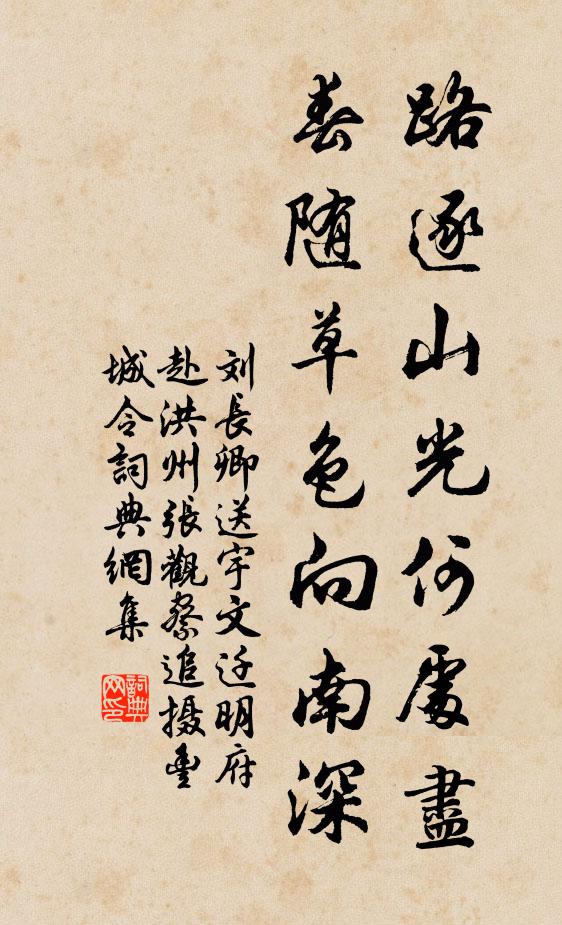 路逐山光何處盡
春随草色向南深
刘長卿送宇文迁明府
赴洪州張觀察追摄豊
城令詞典網集
詞典网印